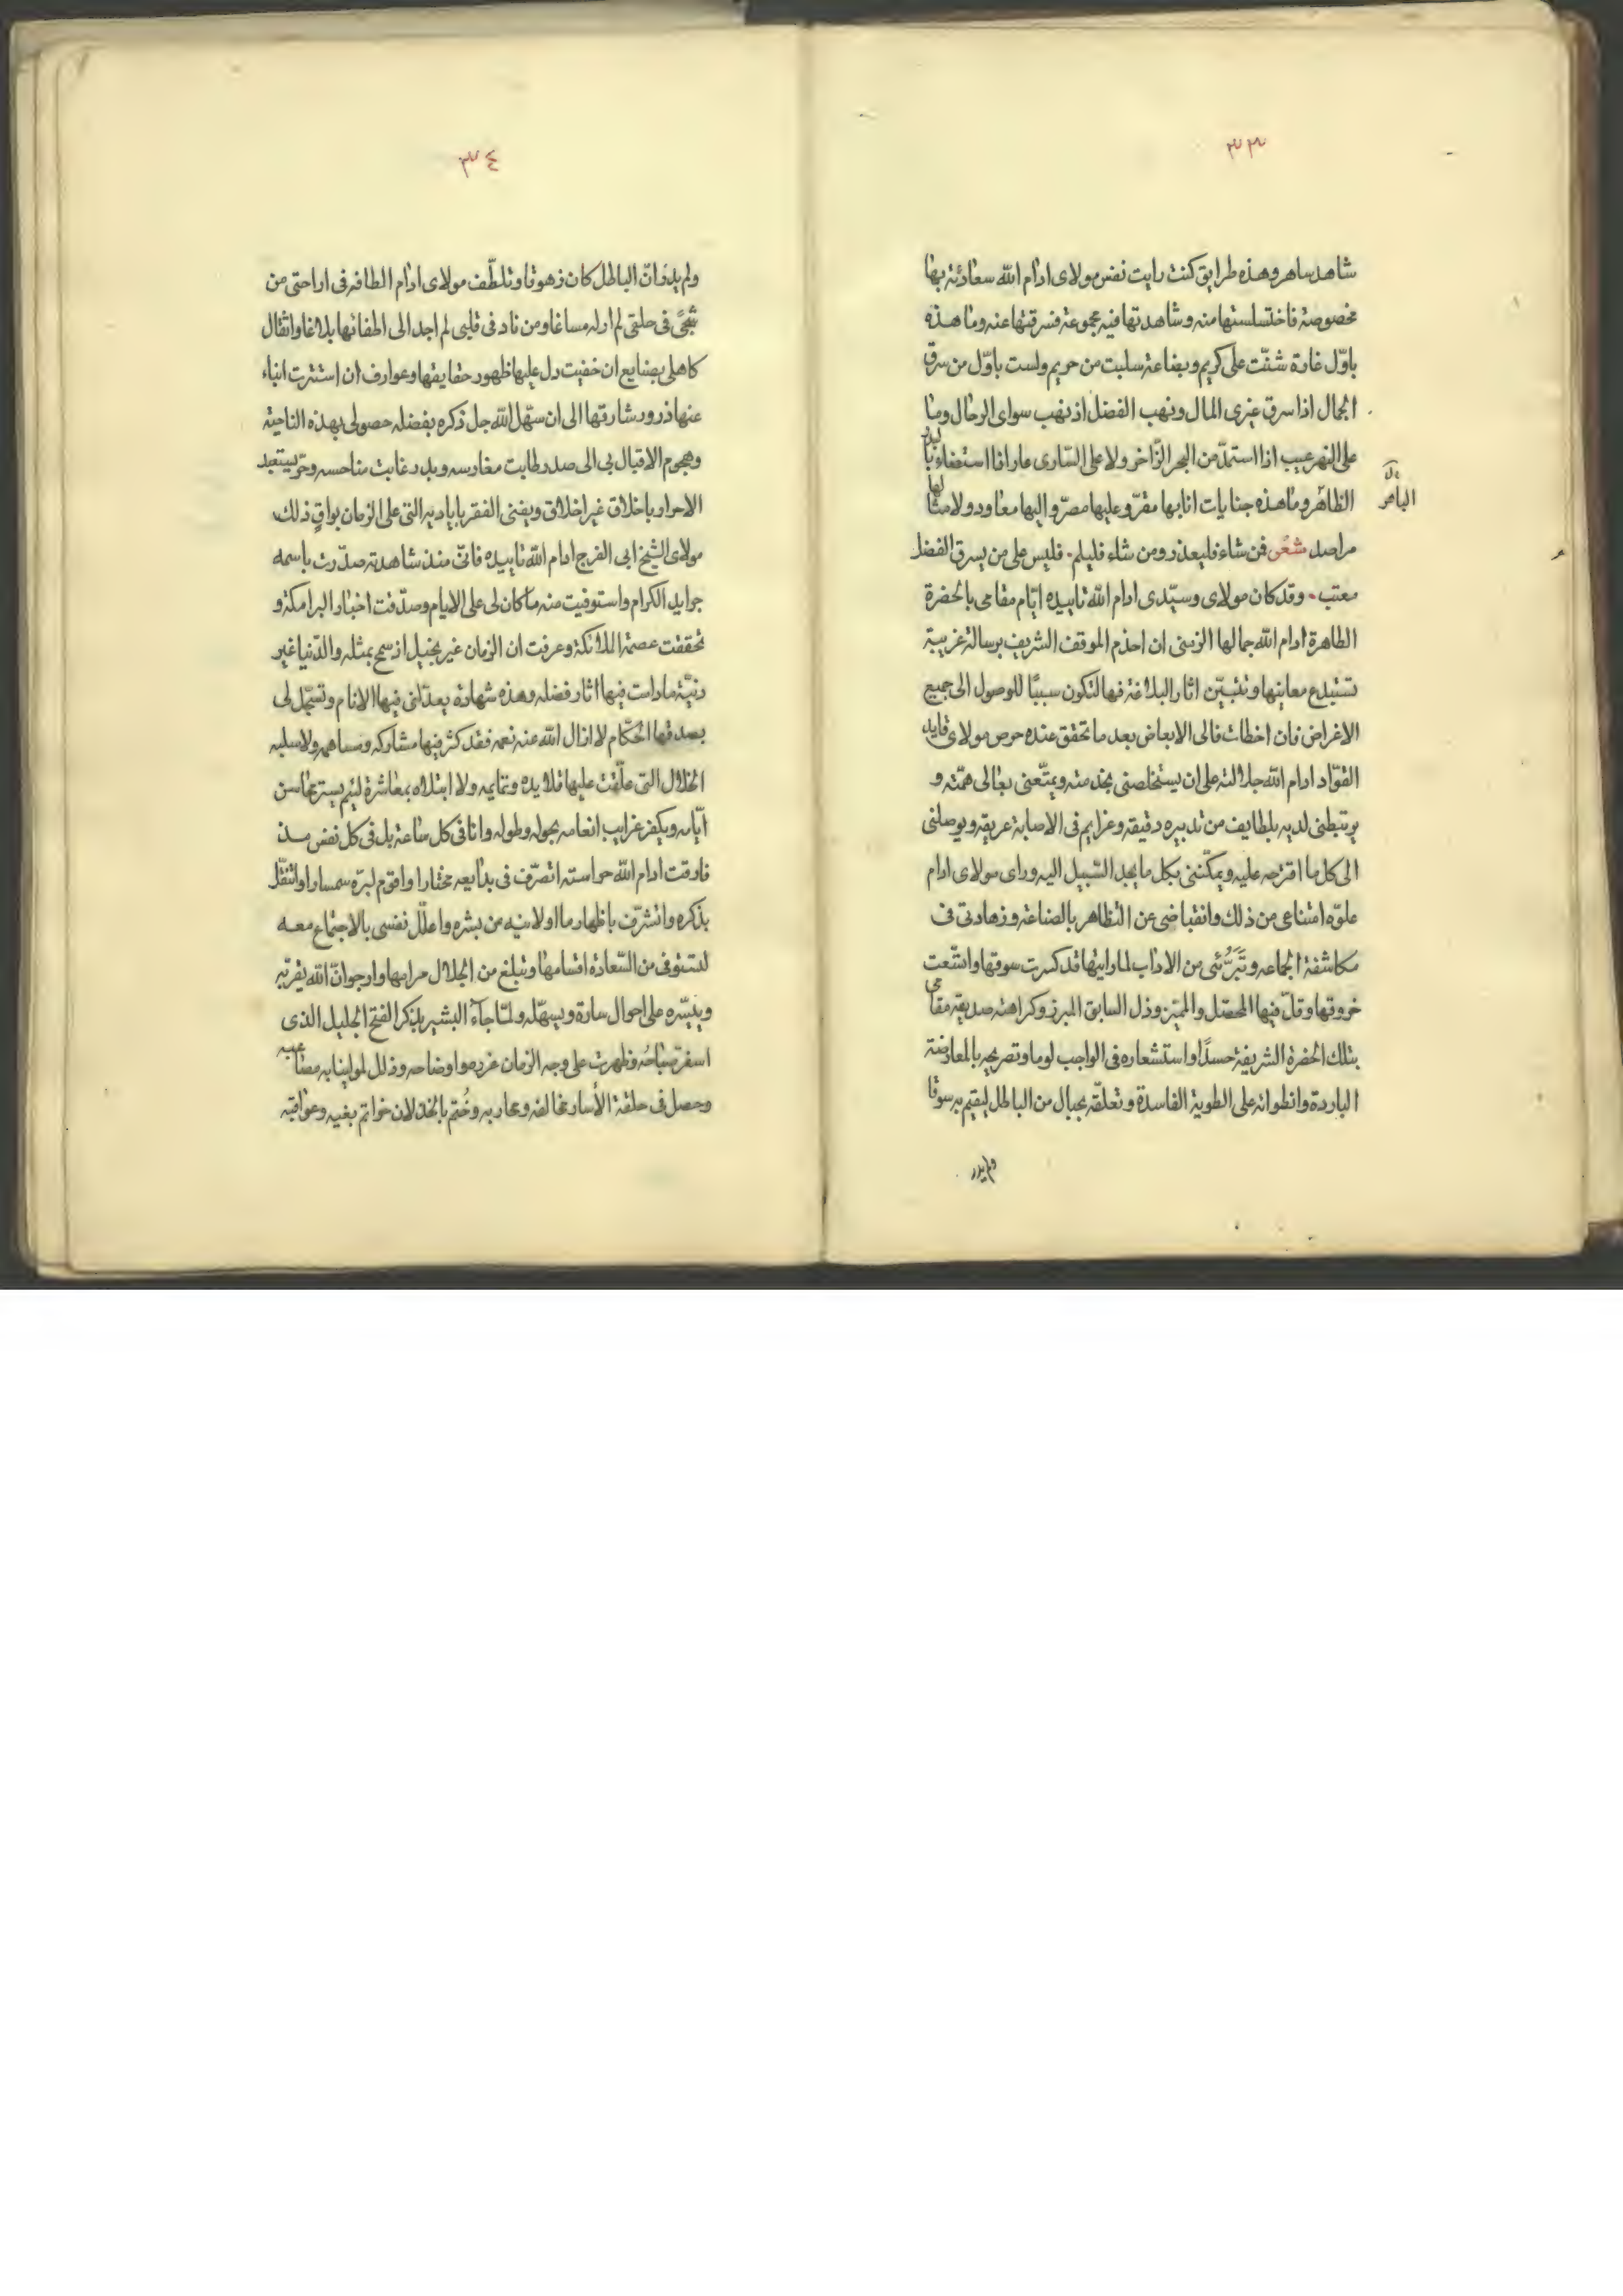 ٣٣
شاهد ساهر وهذه طرايق كنت رايت نفس مولاى ادام الله سعادته بها
مخصوصة فاختلستها منه وشاهدتها فيه مجموعة فسرقتها عنه وما هذه
باوّل غارة شنّت على كريم وبضاعة سلبت من حريم ولست باوّل من سرق
الجمال اذا سرق غيرى المال ونهب الفضل اذ نهب سواى الرحال وما
على النهر عيب اذا استمدّ من البحر الزّاخر ولا على السّارى عار اذا استضاء بالبدر
الباهر
الظاهر وما هذه جنايات انا بها مقرّ وعليها مصرّ واليها معاود ولامثالها
مراصد شعر فمن شاء فليعذر ومن شاء فليلم فليس على من يسرق الفضل
معتب وقد كان مولاى وسيّدى ادام الله تاييده ايّام مقامى بالحضرة
الطاهرة ادام الله جمالها الزمنى ان اخدم الموقف الشريف برسالة غريبة
تستبدع معانيها وتتبيّن اثار البلاغة فيها لتكون سببًا للوصول الى جميع
الاغراض فان اخطات فالى الابعاض بعد ما تحقق عنده حرص مولاى قايد
القوّاد ادام الله جلالته على ان يستخلصنى بخدمته ويمتّعنى بعالى همّته و
يرتبطنى لديه بلطايف من تدبيره دقيقه وعزايم فى الاصابة عريقه ويوصلنى
الى كل ما اقترحه عليه ويمكّننى بكل ما يجد السّبيل اليه وراى مولاى ادام
علوّه امتناعى من ذلك وانقباضى عن التظاهر بالصناعة وزهادتى فى
مكاشفة الجماعه وتَبَرُّئى من الاداب لما رايتها قد كسرت سوقها واتّسعت
خروقها وقلّ فيها المحصّل والمميّز وذل السابق المبرز وكراهته صديقه مقامى
بتلك الحضرة الشريفة حسدًا واستشعاره فى الواجب لوما وتصريحه بالمعارضة
الباردة وانطوائه على الطوية الفاسدة وتعلّقه بحبال من الباطل ليقيم به سوقا
ولم يدر
٣٤
ولم يدر انّ الباطل كان زهوقا وتلطّف مولاى ادام الطافه فى اراحتى من
شجًى فى حلقى لم ار له مساغا ومن نار فى قلبى لم اجد الى اطفائها بلاغا واثقال
كاهلى بصنايع ان خفيت دل عليها ظهور حقايقها وعوارف ان استترت انباء
عنها ذرور شارقها الى ان سهّل الله جل ذكره بفضله حصولى بهذه الناحية
وهجوم الاقبال بى الى صدر طابت مغارسه وبدر غابت مناحسه وحرّ يستعبد
الاحرار باخلاق غير اخلاق ويفنى الفقر باياديه التى على الزمان بواقٍ ذلك
مولاى الشيخ ابى الفرج ادام الله تاييده فانّى منذ شاهدته صدّرت باسمه
جرايد الكرام واستوفيت منه ما كان لى على الايام وصدّقت اخبار البرامكة و
تحققت عصمة الملائكة وعرفت ان الزمان غير بخيل اذ سمح بمثله والدّنيا غير
دنيّة ما دامت فيها اثار فضله وهذه شهادة يعدّلنى فيها الانام وتسجّل لى
بصدقها الحكّام لا ازال الله عنه نعمه فقد كثر فيها مشاركه ومساهمه ولا سلبه
الخلال التى علّقت عليها قلايده وتمايمه ولا ابتلاه بمعاشرة لئيم يستر محاسن
ايّامه ويكفر غرايب انعامه بحوله وطوله وانا فى كل ساعة بل فى كل نفس مذ
فارقت ادام الله حراسته اتصرّف فى بدايعه مختارا واقوم لبرّه سمسارا واتنقّل
بذكره واتشرّف باظهار ما اولانيه من بشره واعلّل نفسى بالاجتماع معه
لنستوفى من السّعادة اقسامها ونبلغ من الجلال مرامها وارجو انّ الله يقرّبه
وييسّره على احوال سارة ويسهّله ولمّا جاءَ البشير بذكر الفتح الجليل الذى
اسفر صَباحُه وظهرت على وجه الزمان غرره واوضاحه وذلل لمولينا به مصاعبه
وحصل فى حلقة الأسار مخالفه ومحاربه وخُتم بالخذلان خواتم بغيه وعواقبه